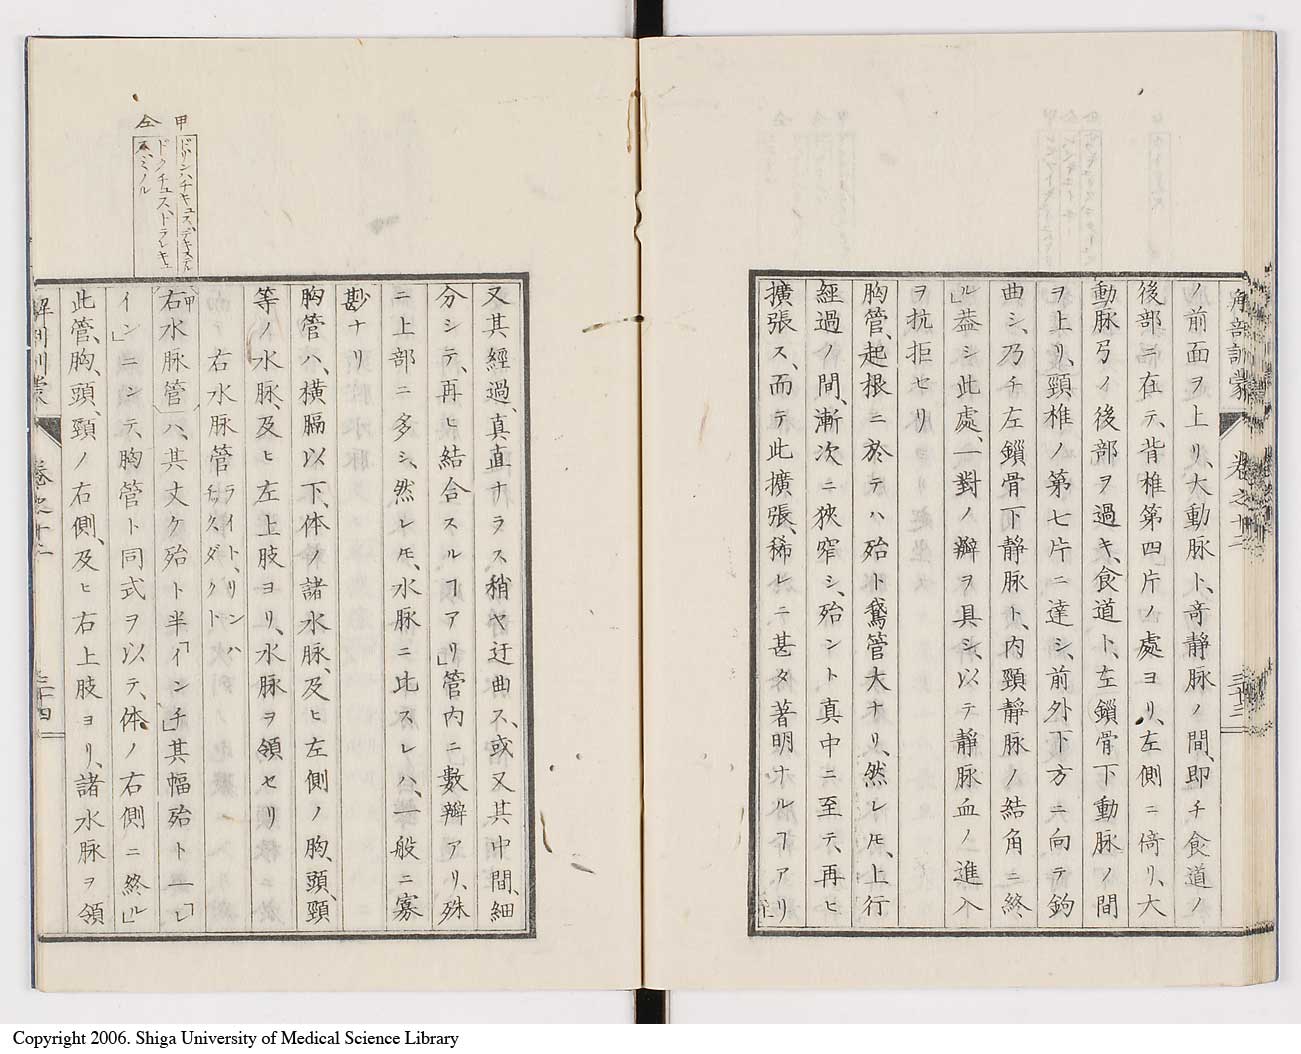 ノ前面ヲ上リ、大動脉ト、奇靜脉ノ間、即チ食道ノ
後部ニ在テ、背椎第四片ノ處ヨリ、左側ニ倚リ、大
動脉弓イ後部ヲ過キ、食道ト、左鎖骨下動脉ノ間
ヲ上リ、頸椎ノ第七片ニ達シ、前外下方ニ向テ鈎
曲シ、乃チ左鎖骨下靜脉ト、内頸靜脉ノ結角ニ終
ル」葢シ此處、一對ノ瓣ヲ具シ、以テ靜脉血ノ進入
ヲ抗拒セリ
胸管、起根ニ於テハ殆ト鵞管大ナリ、然レ𪜈、上行
經過ノ間、漸次ニ狹窄シ、殆ント真中ニ至テ、再ヒ
擴張ス、而テ此擴張、稀レニ甚タ著明ナルヿアリ
甲 ドリンハチキュス、デキステル
仝 ドクチュス、トラレキュス、ミノル
又其經過、真直ナラス、稍ヤ迂曲ス、或又其中間、細
分シテ、再ヒ結合スルヿアリ」管内ニ數瓣アリ、殊
ニ上部ニ多シ、然レ𪜈、水脉ニ比スレハ、一般ニ寡
尠ナリ
胸管ハ、横膈以下、体ノ諸水脉、及ヒ左側ノ胸、頭、頸
等ノ水脉、及ヒ左上肢ヨリ、水脉ヲ領セリ
右水脉管 ライト、リンハチックス、ダクト
甲右水脉管ハ、其丈ケ殆ト半「インチ」其幅殆ト一「レ
イン」ニシテ、胸管ト同式ヲ以テ、体ノ右側ニ終ル」
此管、胸、頭、頸ノ右側、及ヒ右上肢ヨリ、諸水脉ヲ領
卷之十二
三十四